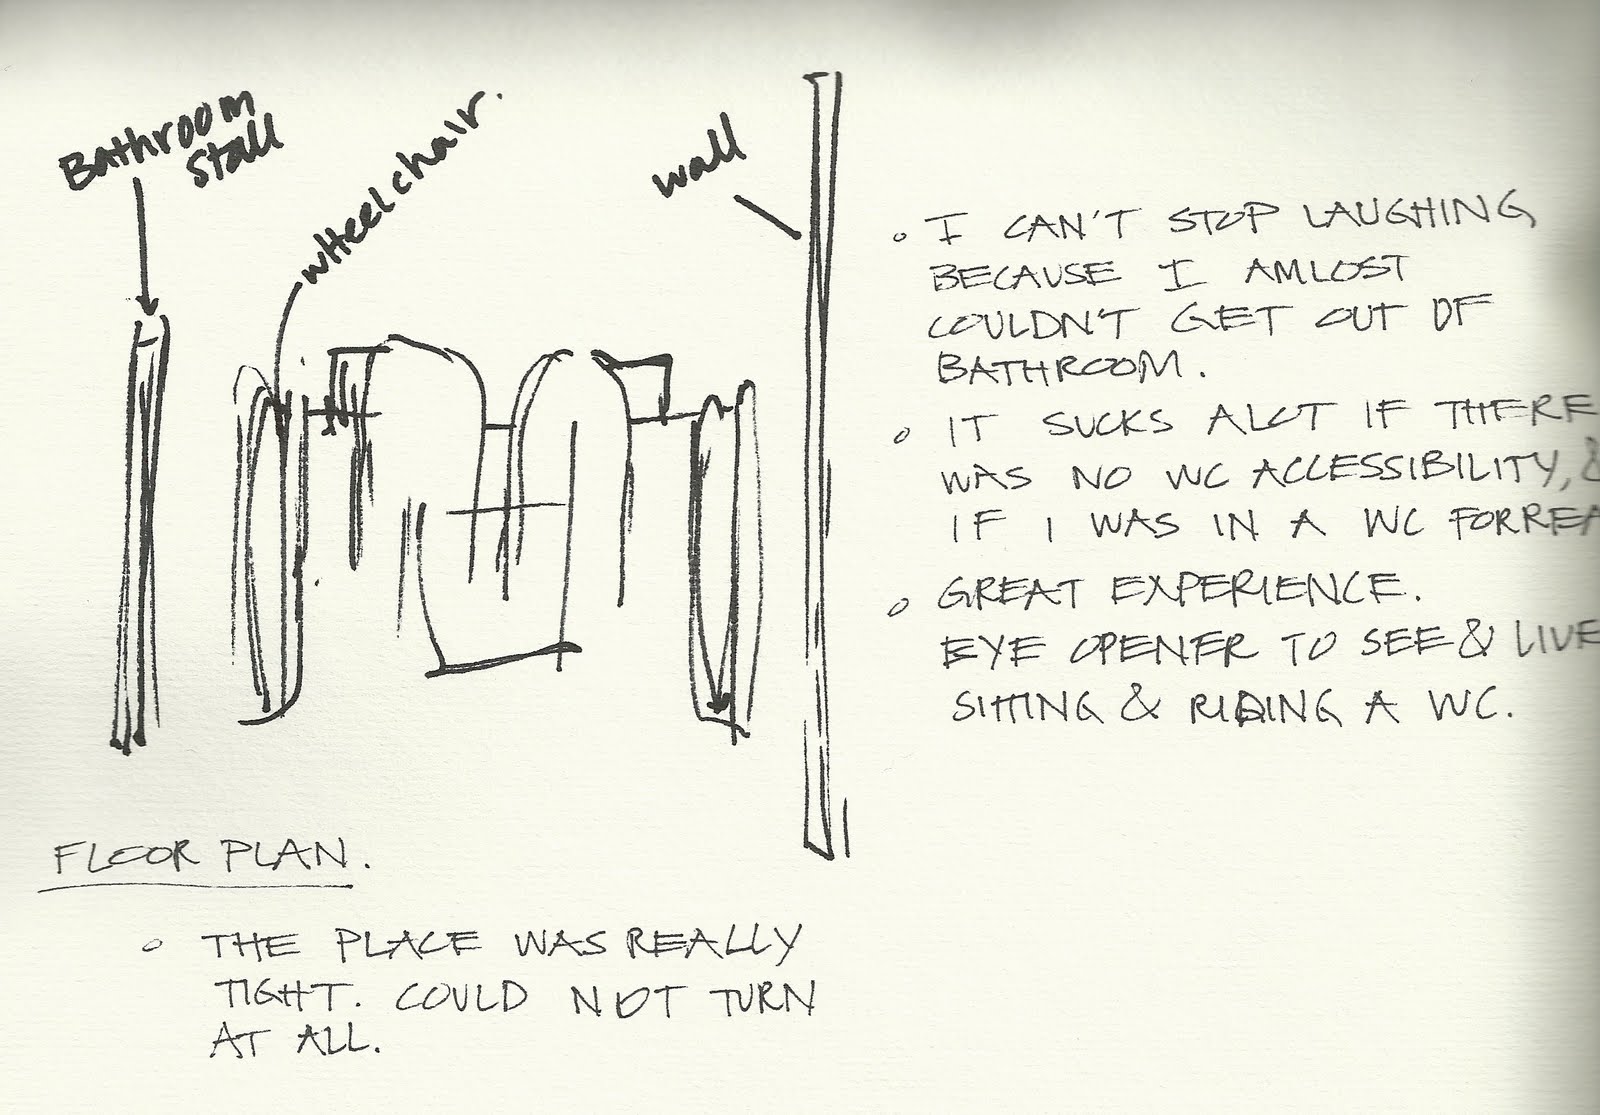 Bathroom
Stall
wheelchair.
wall
I CAN'T STOP LAUGHING
BECAUSE I AMLOST
COULDN'T GET OUT OF
BATHROOM.
IT SUCKS ALOT IF THERE
WAS NO WC ACCESSIBILITY, &
IF I WAS IN A WC FORREA
GREAT EXPERIENCE.
EYE OPENER TO SEE & LIVE
SITTING & RIDING A WC.
FLOOR PLAN.
THE PLACE WAS REALLY
TIGHT. COULD NOT TURN
AT ALL.